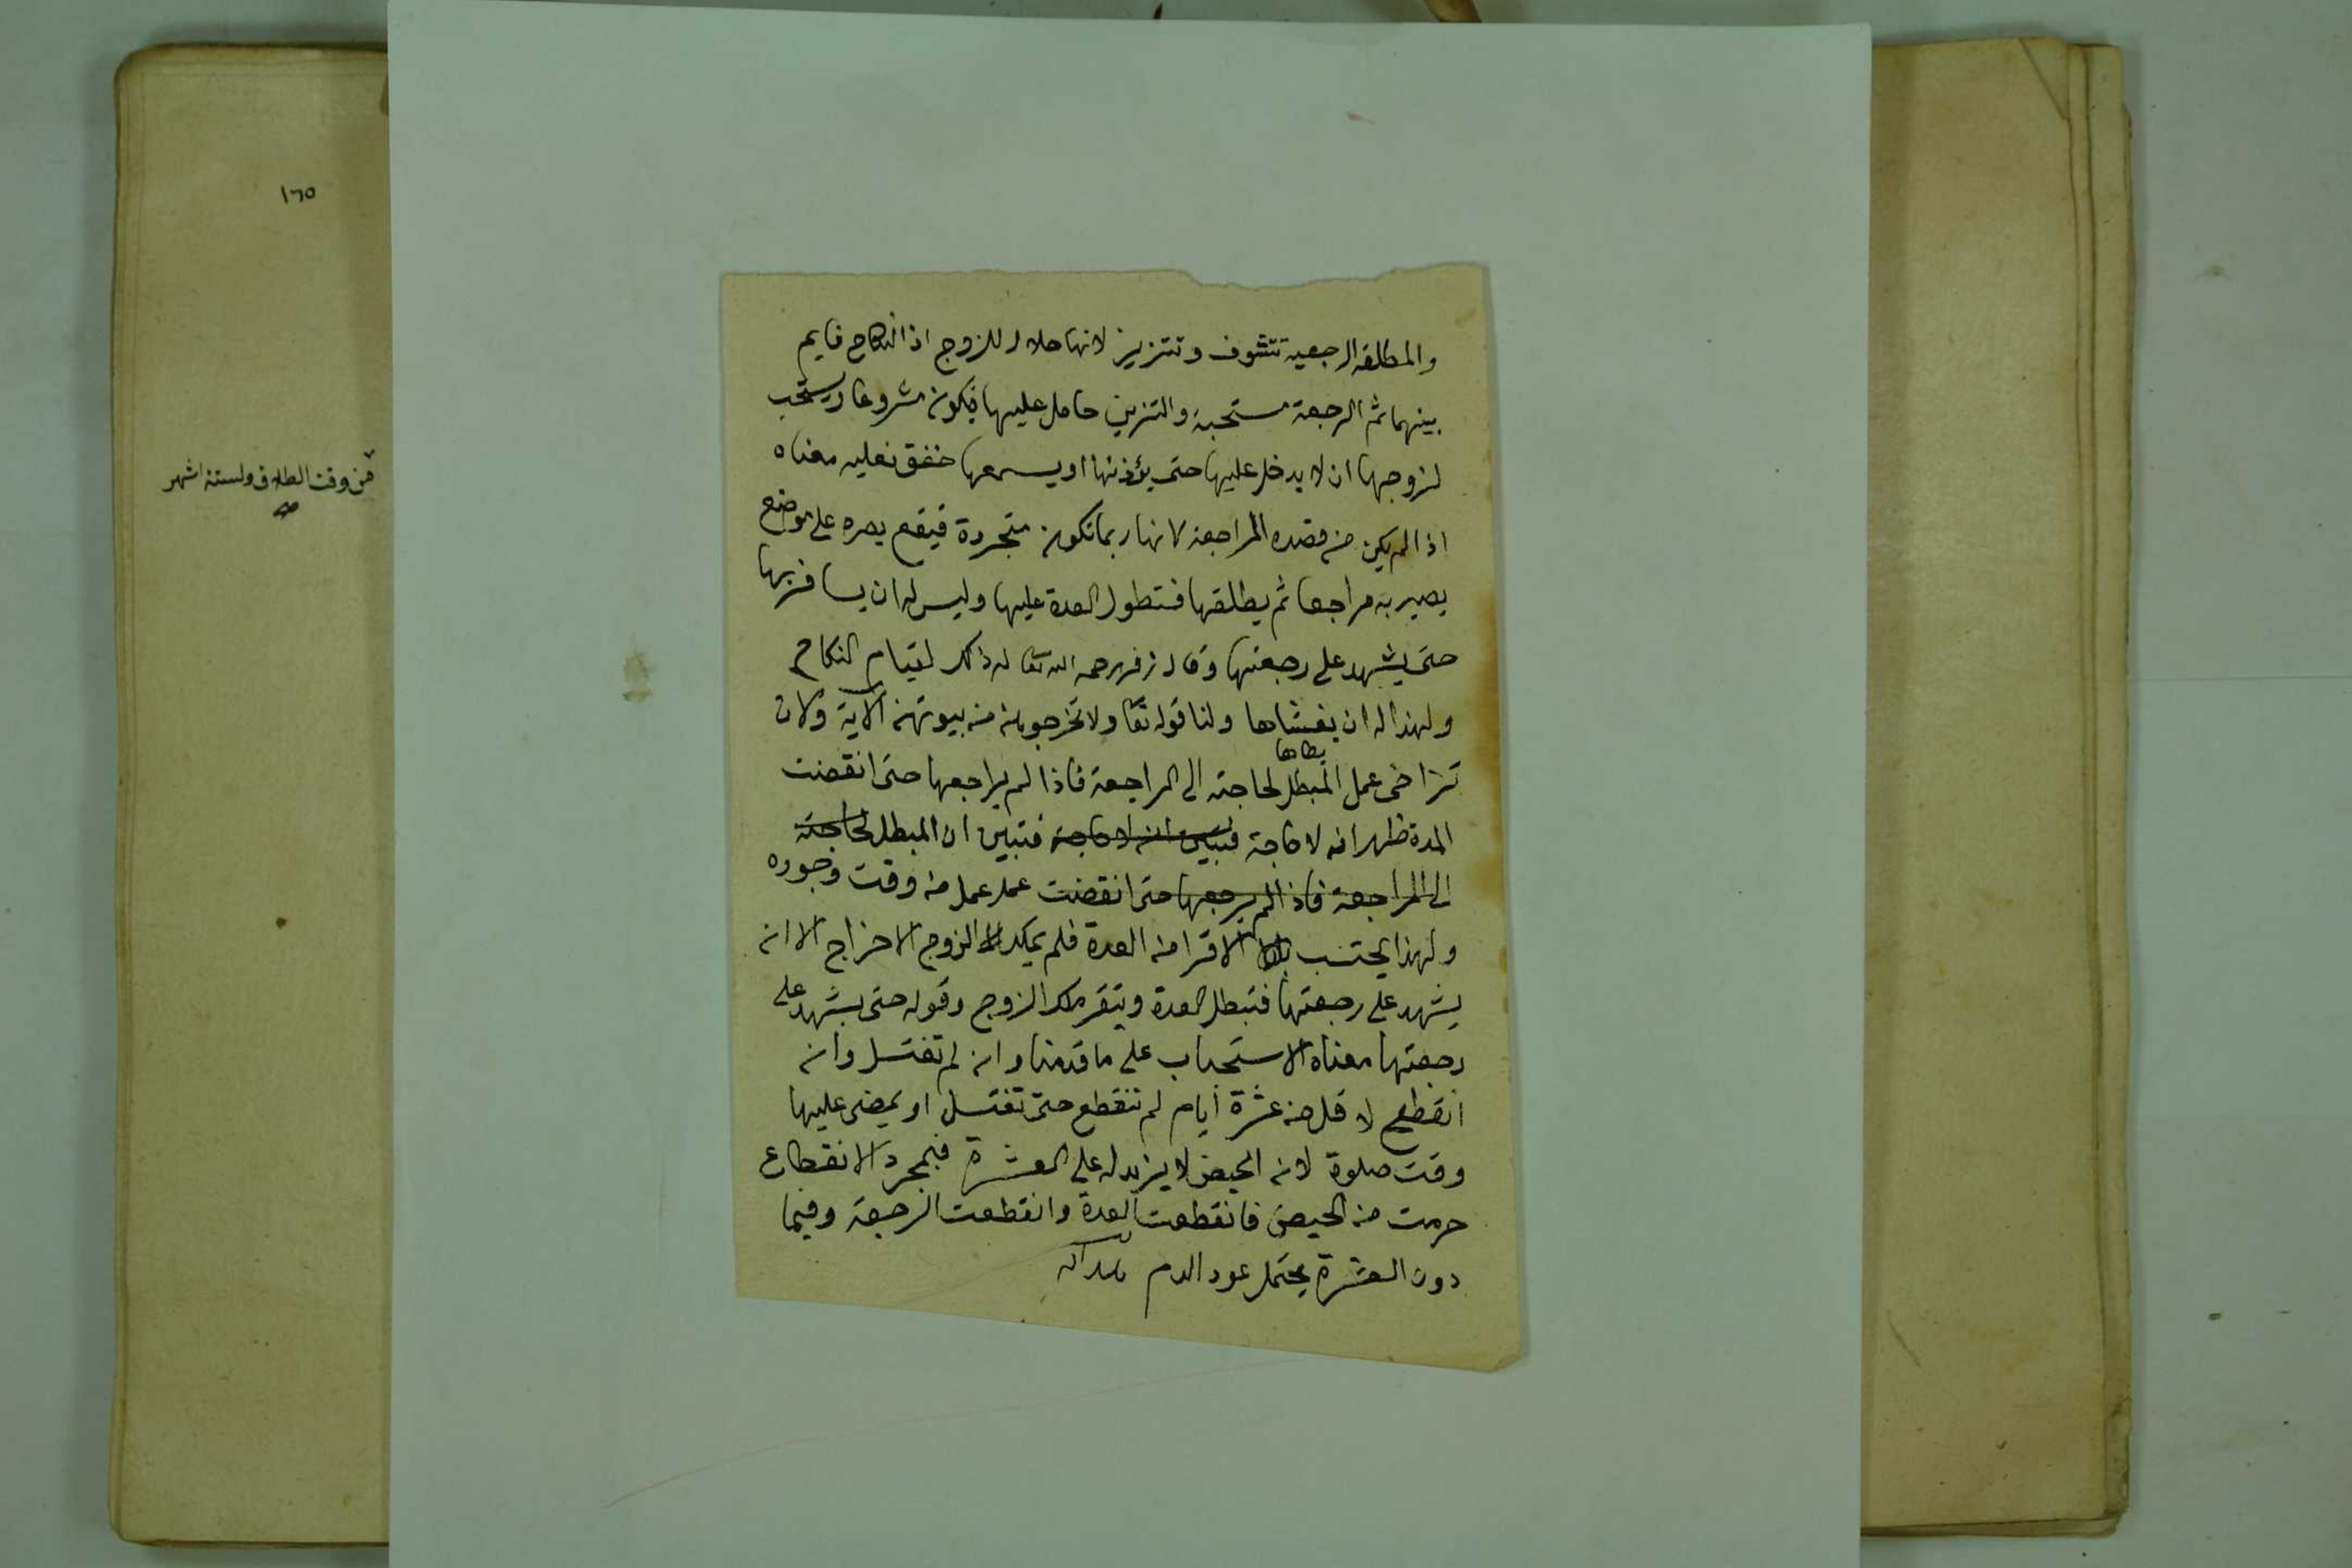 ١٦٥
من وقت الطلاق ولستة اشهر
صح
والمطلقة الرجعية تتشوف وتتزين لانها حلال للزوج اذ النكاح قايم
بينهما ثم الرجعة مستحبة والتزين حامل عليها فيكون مشروعا ويستحب
لزوجها ان لا يدخل عليها حتى يؤذنها او يسمعها خفق نعليه معناه
اذا لم يكن من قصده المراجعة لانها ربما تكون متجردة فيقع بصره على موضع
يصير به مراجعا ثم يطلقها فتطول العدة عليها وليس له ان يسافر بها
حتى يشهد على رجعتها وقال زفر رحمه الله تعا له ذلك لقيام النكاح
ولهذا له ان يغشاها ولنا قوله تعا ولا تخرجوهن من بيوتهن الآية ولان
يطاها
تراخى عمل المبطل لحاجته الى المراجعة فاذا لم يراجعها حتى انقضت
المدة ظهر انه لا حاجة فتبين انه لا حاجة فتبين ان المبطل لحاجته
الى المراجعة فاذا لم يرجعها حتى انقضت عمل عمله من وقت وجوده
ولهذا يحتسب الاقرا من العدة فلم يملك الزوج الاخراج الا ان
يشهد على رجعتها فتبطل العدة ويتقرر ملك الزوج وقوله حتى يشهد على
رجعتها معناه الاستحباب على ما قدمنا وان لم تغتسل وان
انقطع لاقل من عشرة ايام لم تنقطع حتى تغتسل او يمضى عليها
وقت صلوة لان الحيض لا يزيد له على العشرة فبمجرد الانقطاع
خرجت من الحيض فانقطعت العدة وانقطعت الرجعة وفيما
دون العشرة يحتمل عود الدم هدايه